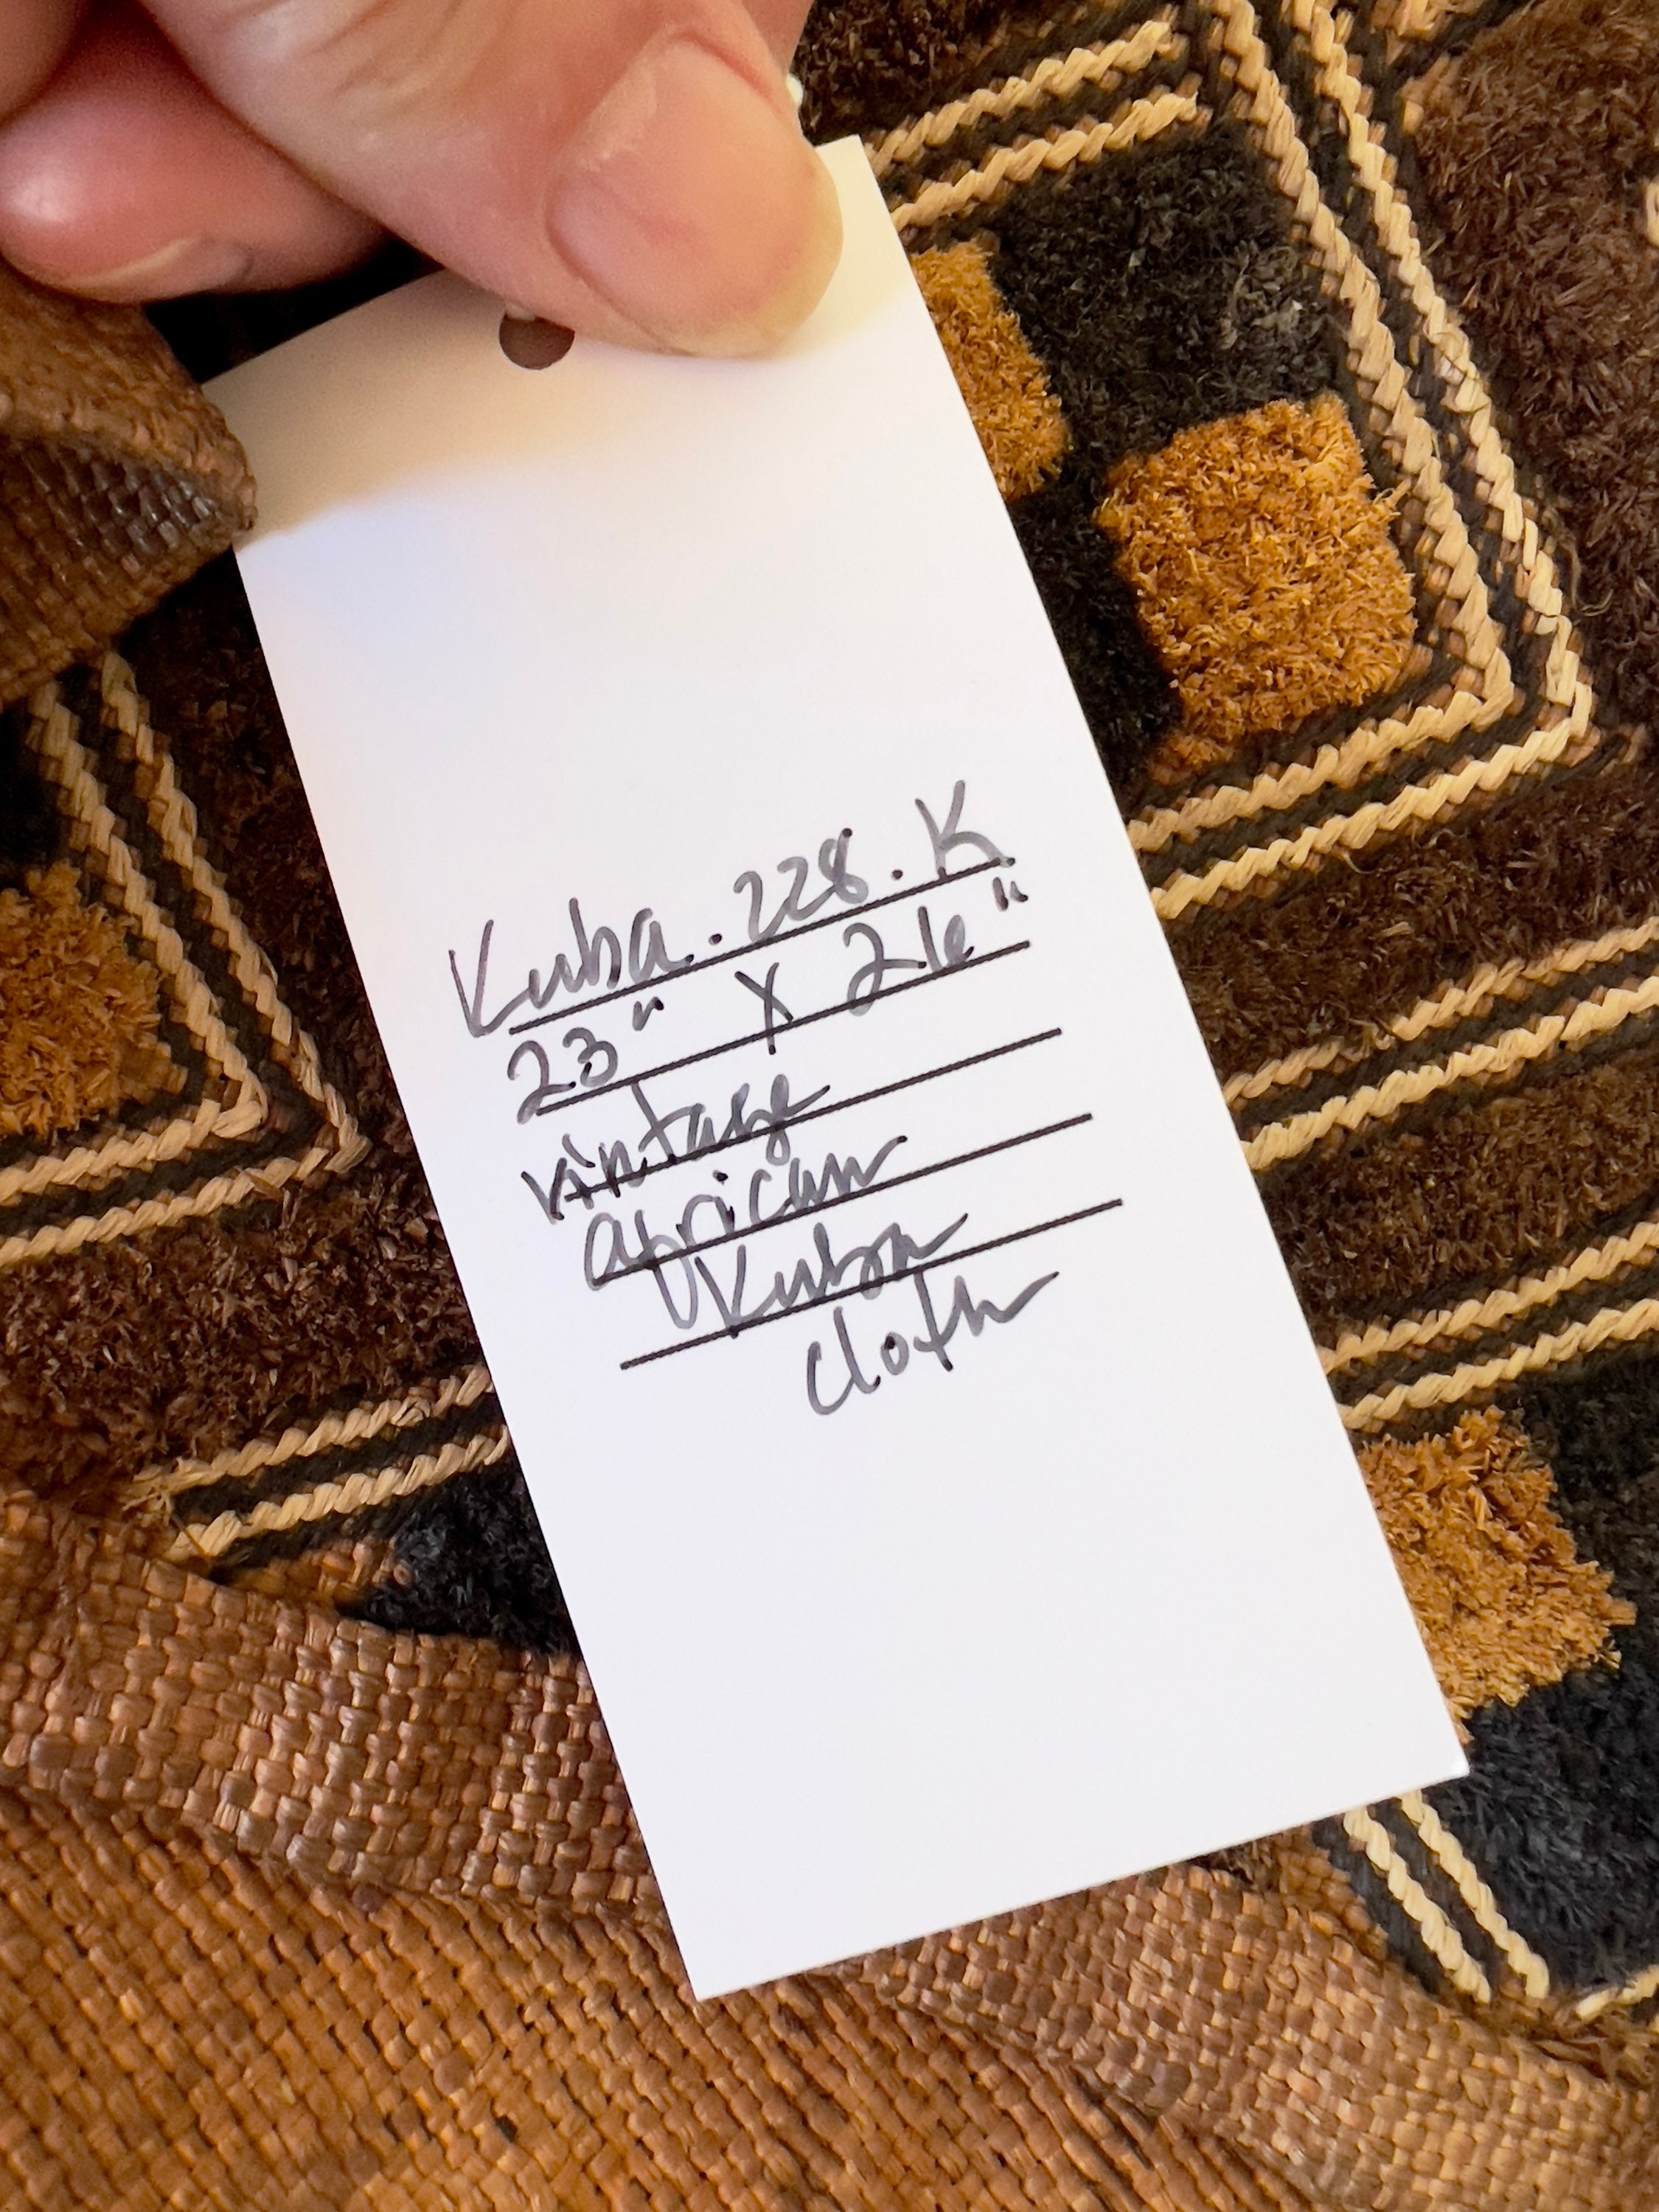 Kuba.228.K
23" X 26"
vintage
african
Kuba
cloth